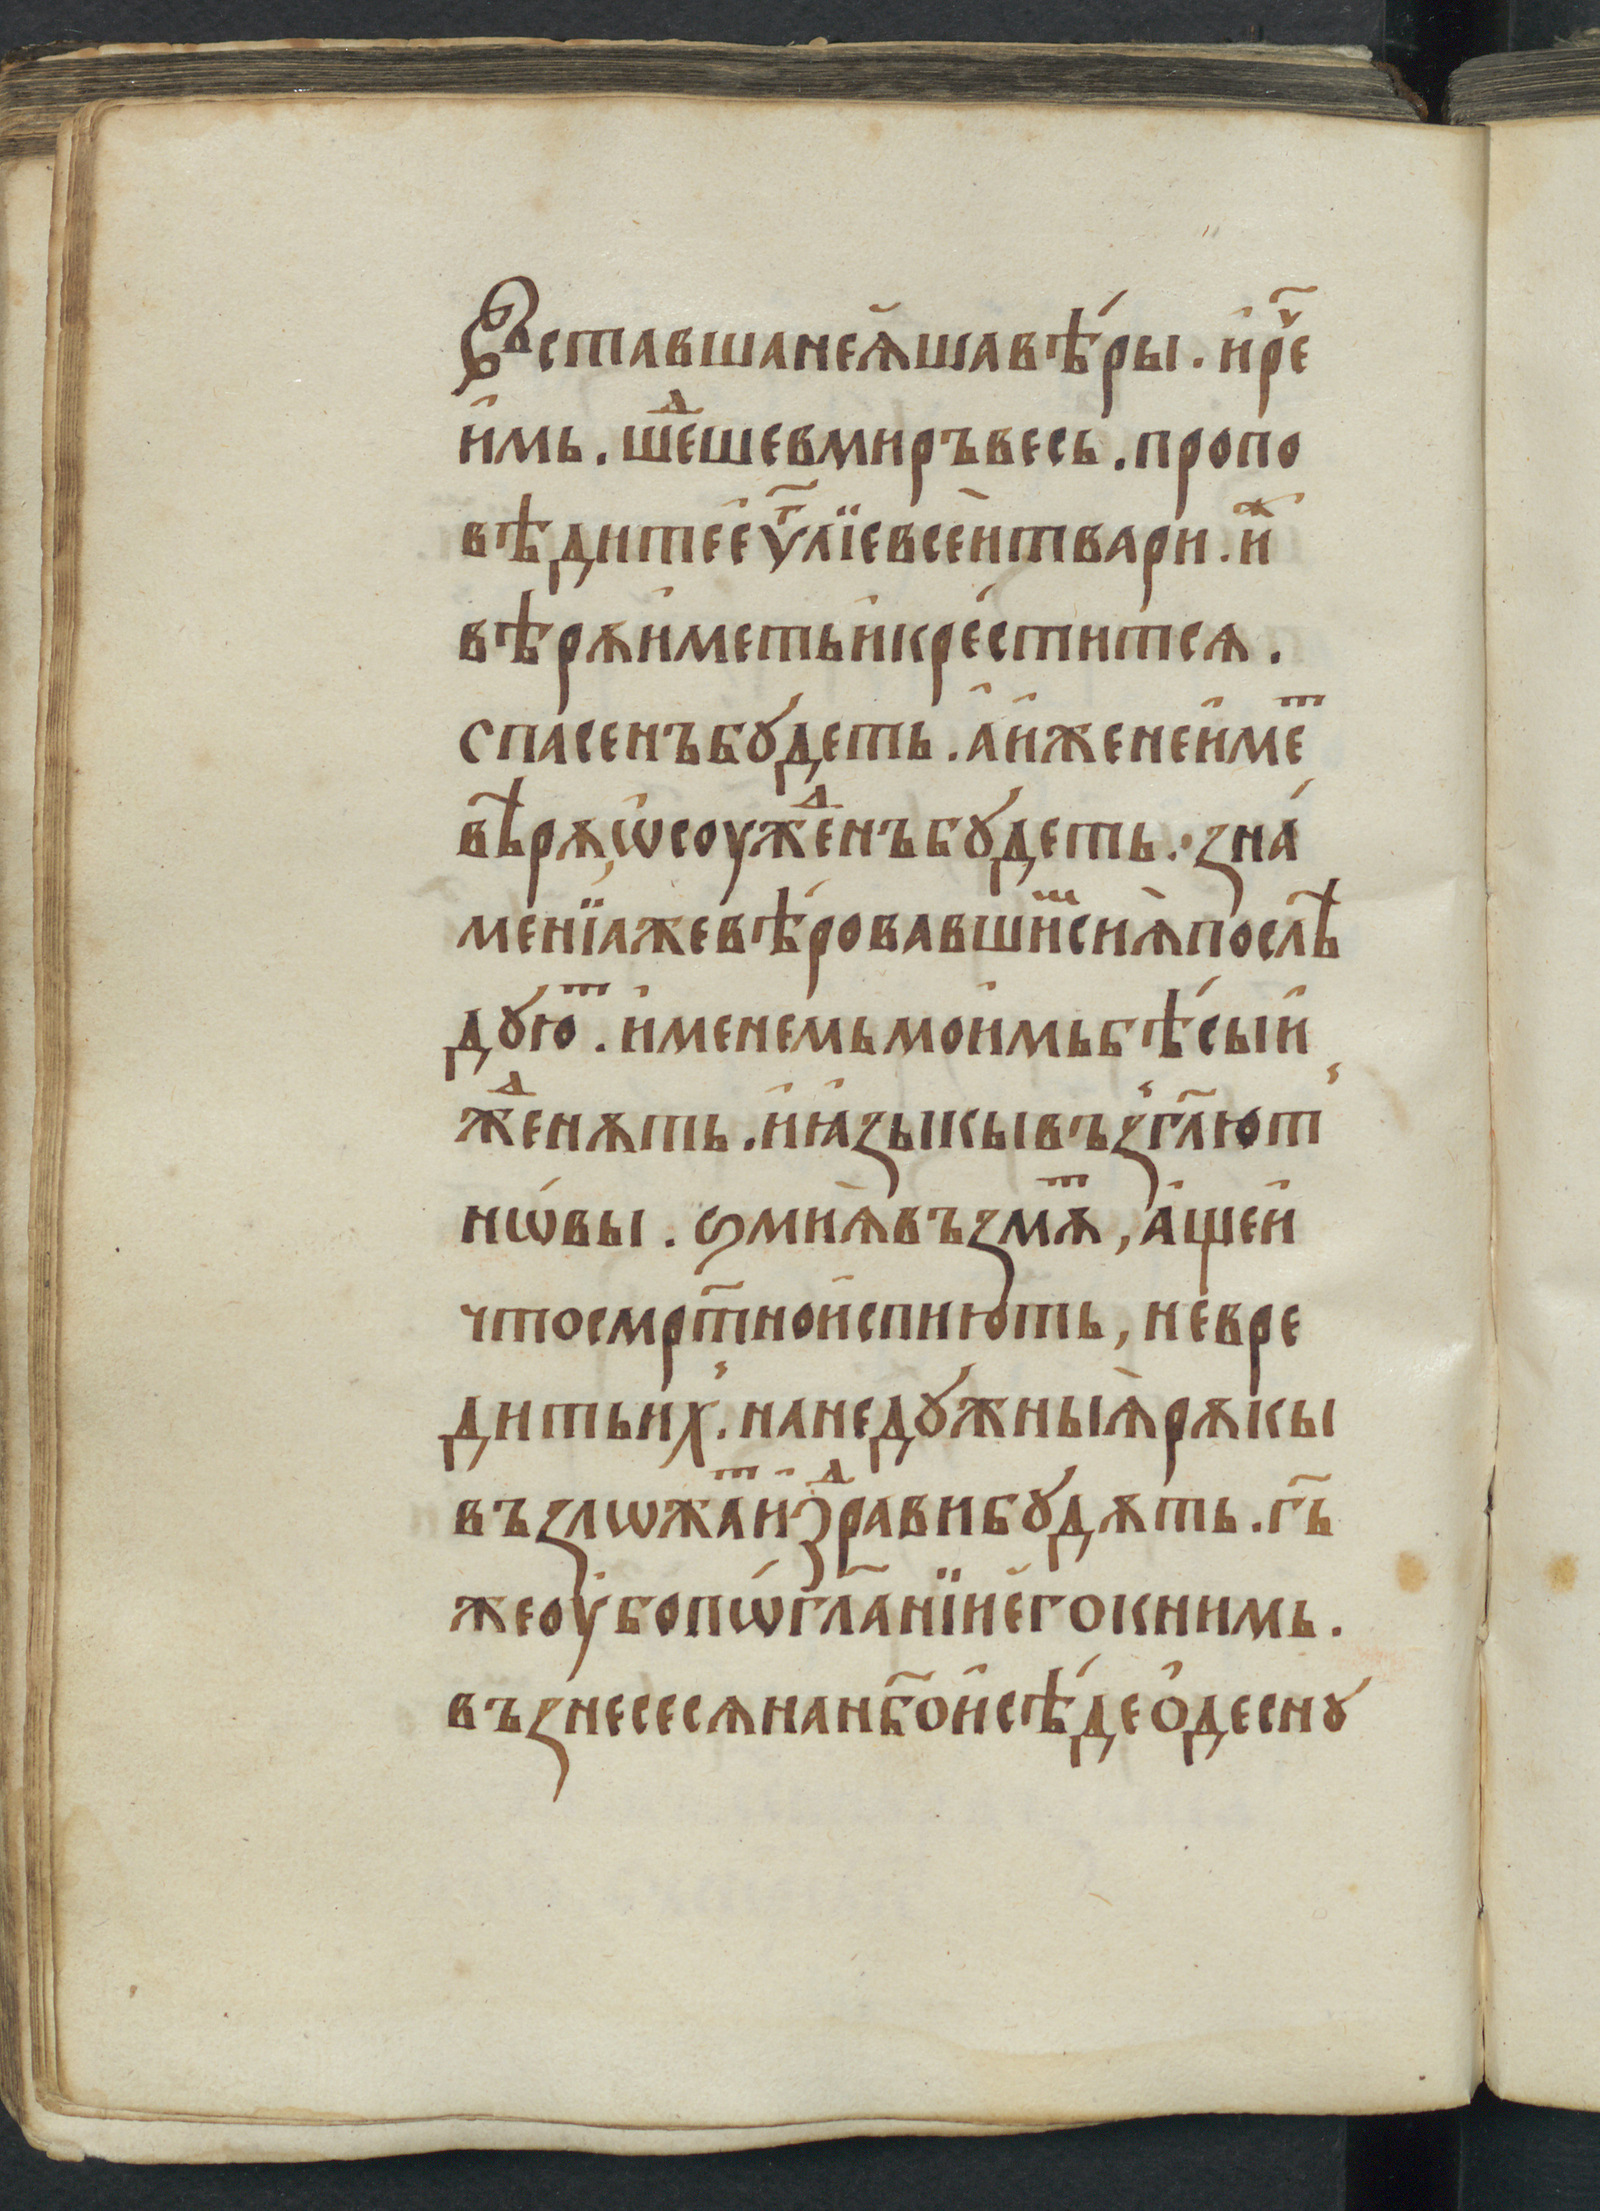 въставшанеѧ̀шавѣ́ры . и҆рече҃
и҆мь . шеⷣшевмиръвесь . пропо
вѣдитее҆ѵⷢ҇лїевсеѝтвари . и҆ⷤ
вѣрѫи҆меть и҆крести́тсѧ .
спасенъбꙋ́деть . а҆и҆женеи҆меⷮ
вѣрѫ , ѡ҆соужеⷣнъбꙋ́деть . зна́
менїажевѣ́ровавшиⷨсиѧ̀послѣ
дꙋ́юⷮ . и҆менемьмои҆мьбѣ́сыи҆
жеⷣенѫть . и҆ꙗ҆зыкывъзгл҃ют
нѡ́вы . ѕмиѧ̀възмѫⷮ , а҆щеи҆
чтосмрт҃нои҆спиють , невре
дитьих . нанедꙋ́жныѧ̀рѫкы
възлѡжаⷮи҆зⷣравибꙋ́дѫть . гь҃
жеоу҆бопѡ́гл҃анїие҆гокнимь .
възнесесѧнанб҃ои҆сѣ́деѻ҆деснꙋ